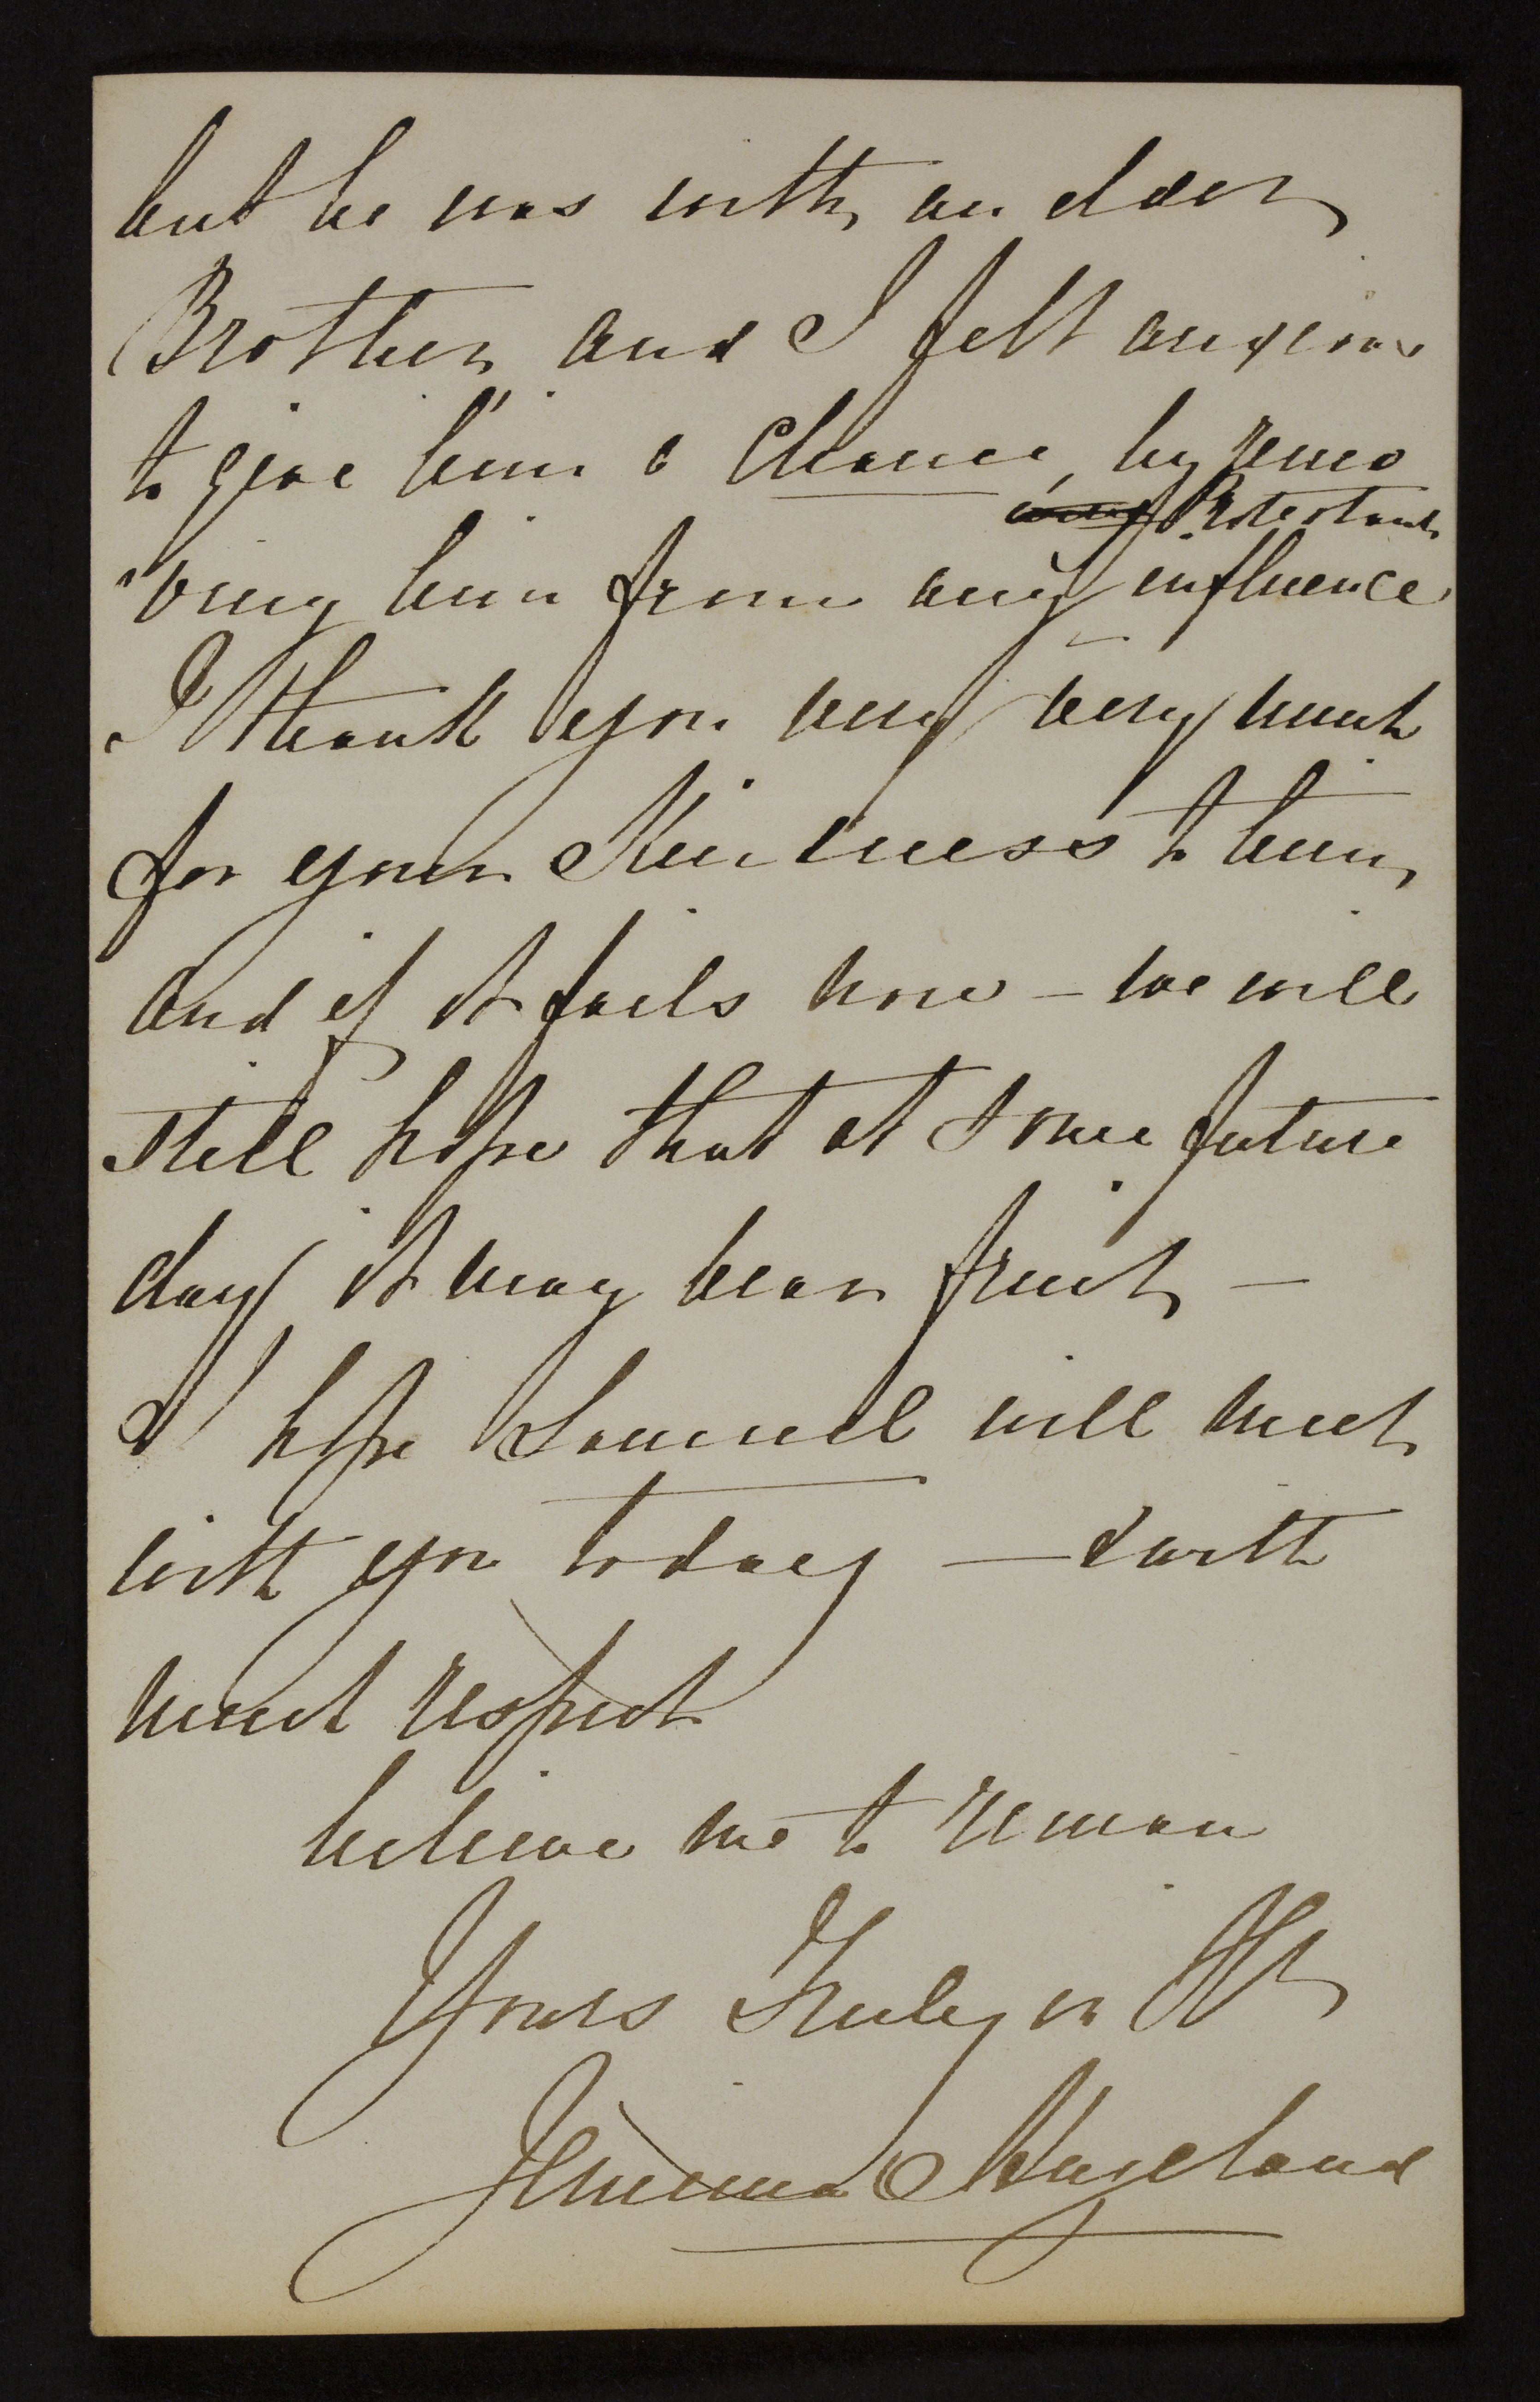 but he was with an elder
Brother and I felt anxious
to give him a chance, by remo
Protestant
"ving him from any influence
I thank you very very much
for your Kindness to him,
and if it fails now – we will
still hope that at some future
day it may bear fruit –
I hope Samuel will meet
with you today – & with
much respect
believe me to remain
Yours Truly in
Jemima